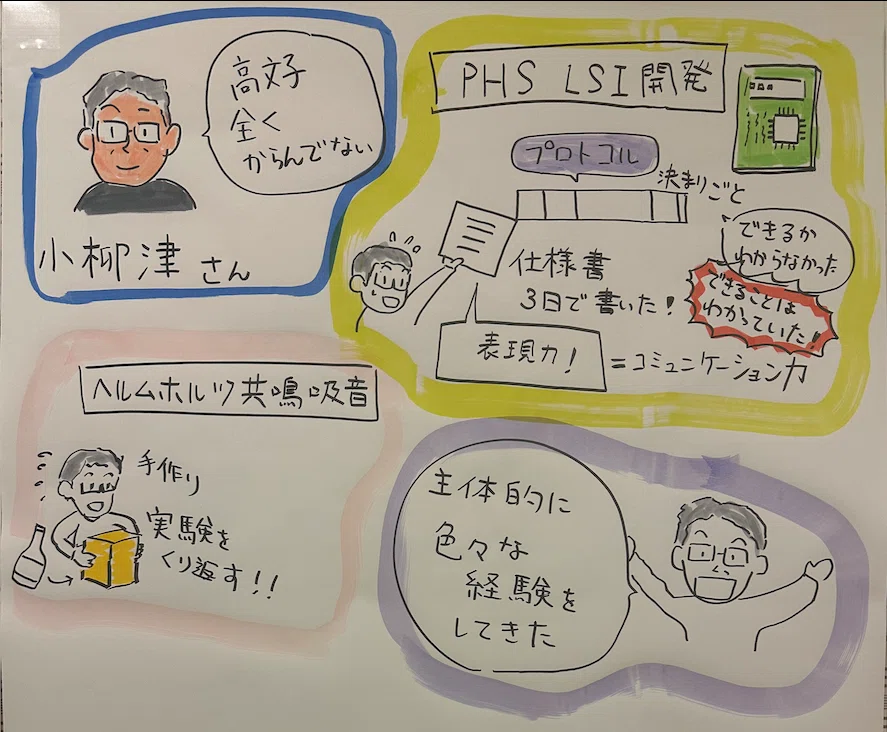 高文子
全く
からんでない
小柳津さん
PHS LSI開発
プロトコル
決まりごと
仕様書
3日で書いた!
できるか
わからなかった
できることは
わかっていた!
表現力!
=コミュニケーション力
ヘルムホルツ共鳴吸音
手作り
実験を
くり返す!!
主体的に
色々な
経験を
してきた